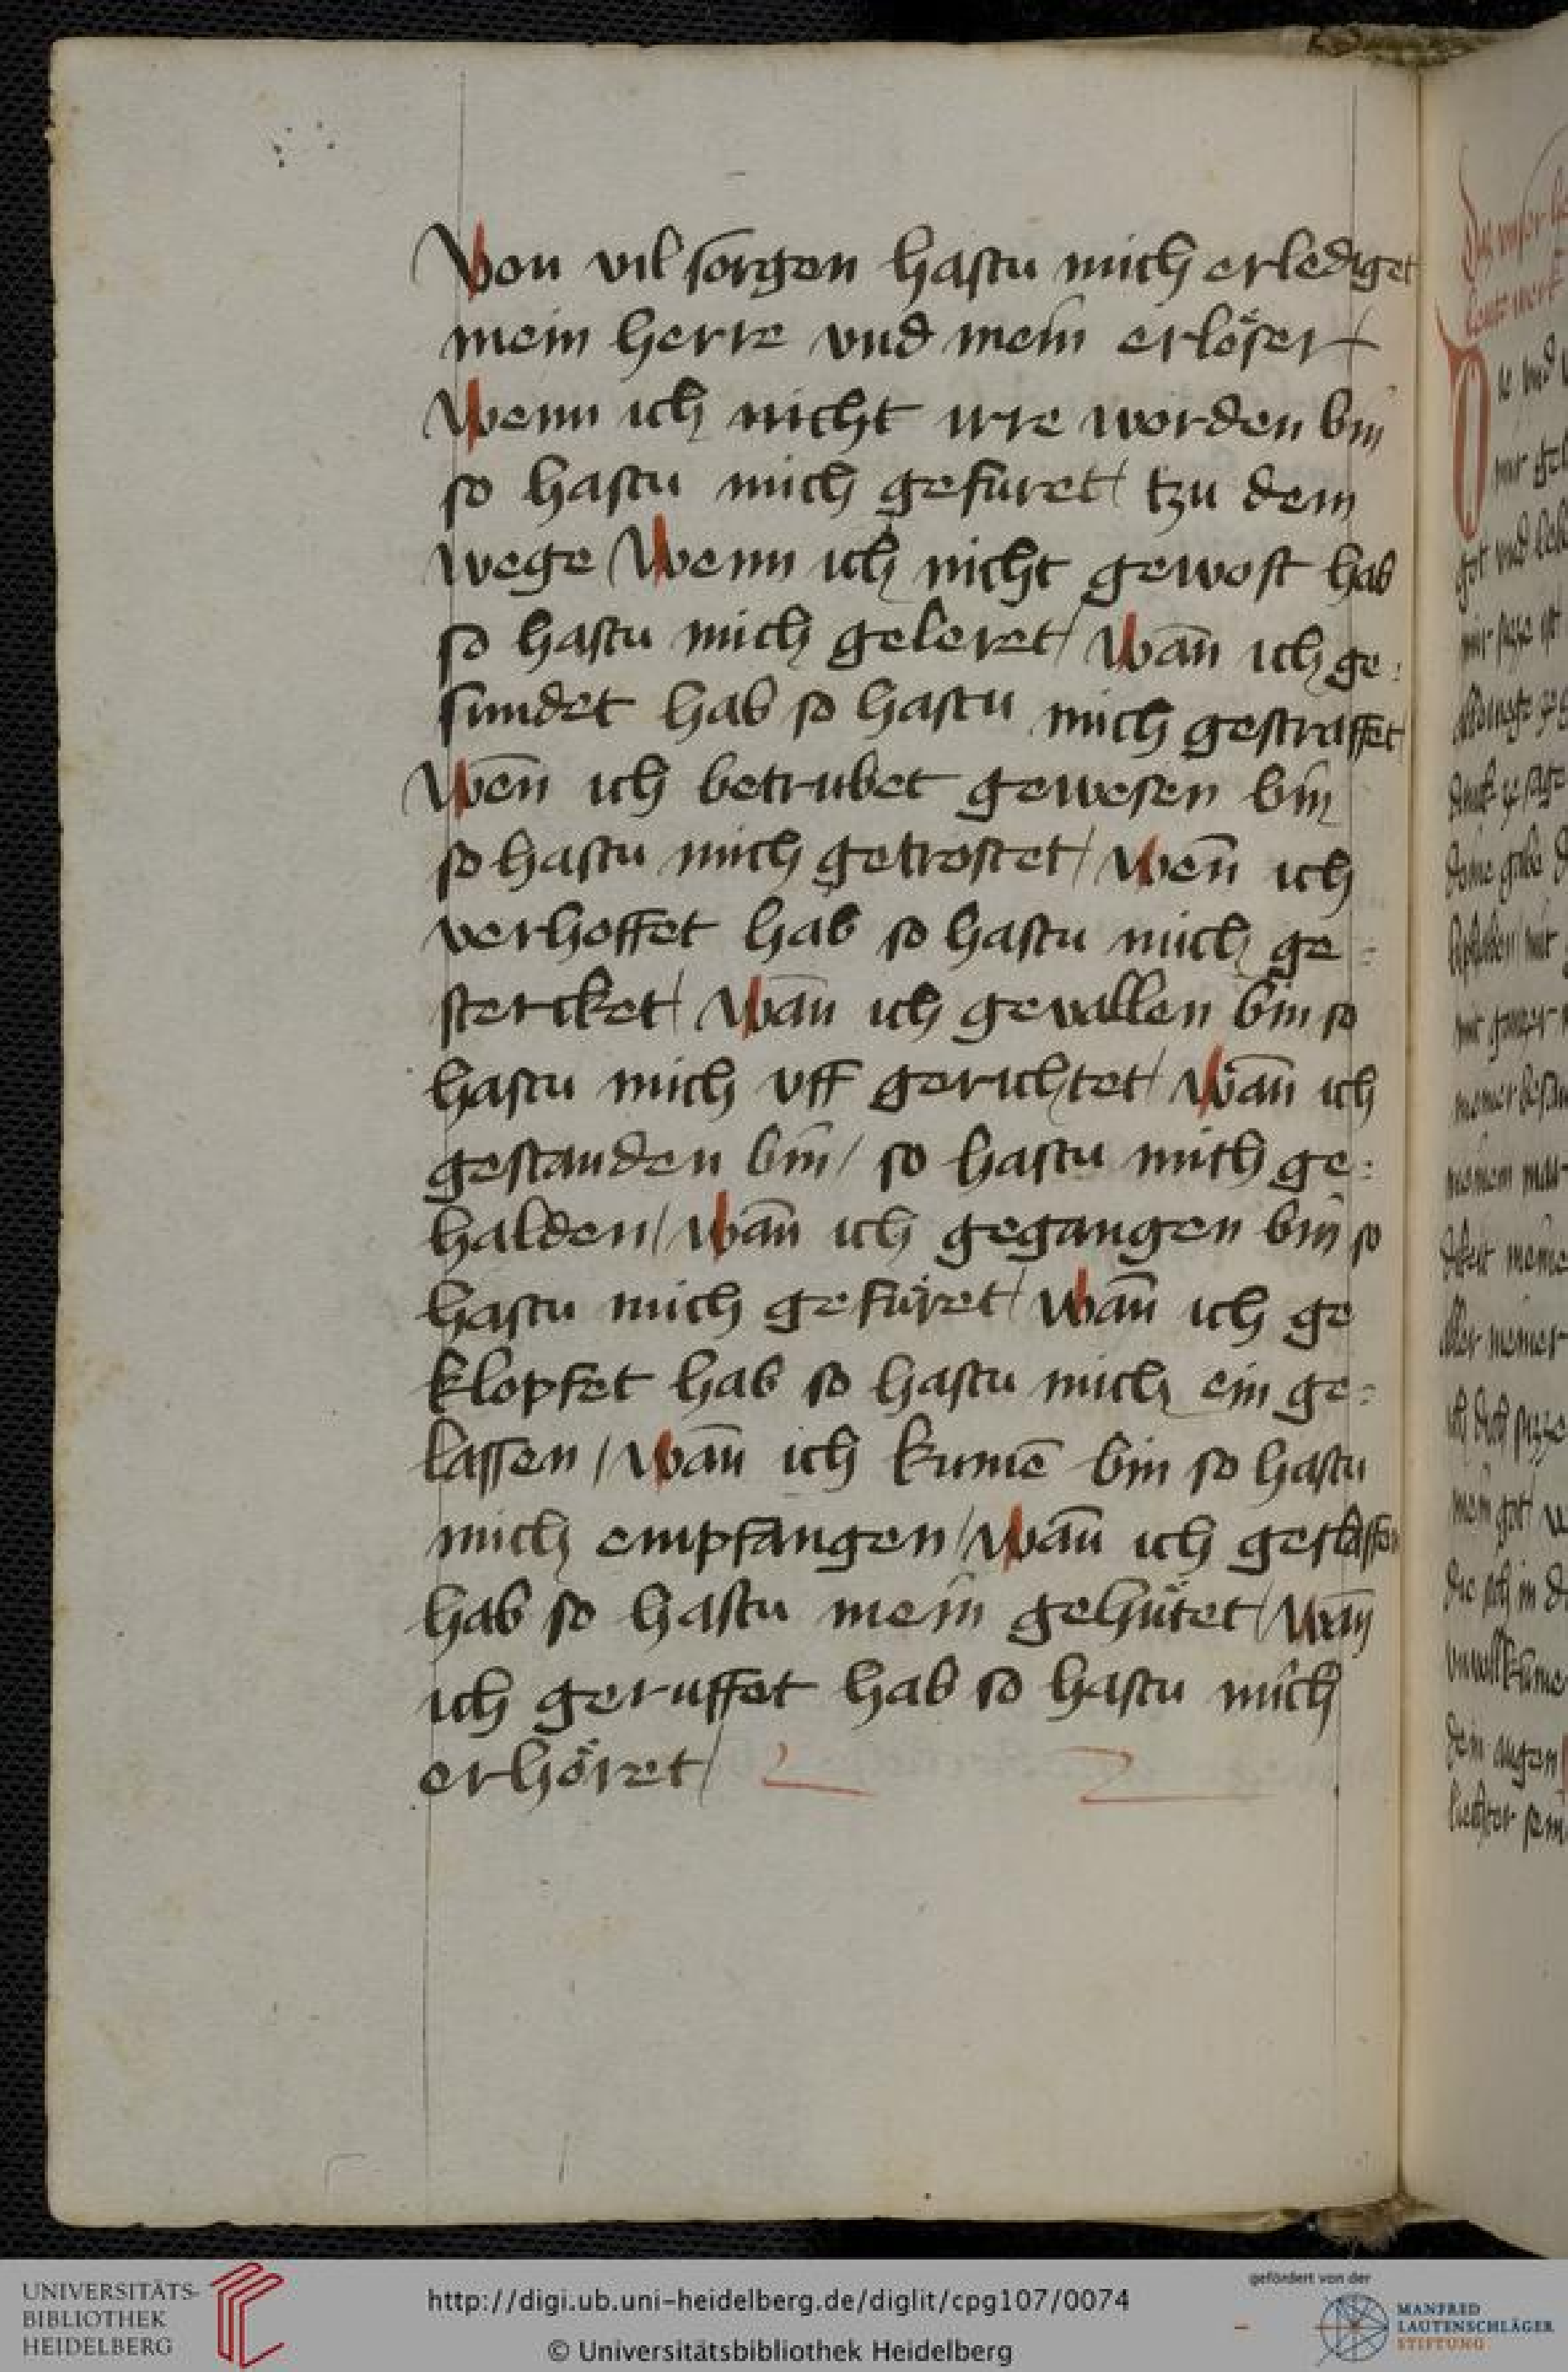 Von vil sorgen hastu mich erlediget
mein herre vnd mein erlöser
Wenn ich nicht irre worden bin
so hastu mich gefuret / tzu dem
wege / Wenn ich nicht gewost hab
so hastu mich geleret / Wañ ich ge:
sundet hab so hastu mich gestraffet
Weñ ich betrubet gewesen bin
so hastu mich getrostet / Weñ ich
verhoffet hab so hastu mich ge:
stercket / Wañ ich gevallen bin so
hastu mich vff gerichtet / Wañ ich
gestanden bin / so hastu mich ge:
halden / Wañ ich gegangen bin so
hastu mich gefüret / Wañ ich ge
klopfet hab so hastu mich ein ge:
lassen / Wañ ich kumē bin so hastu
mich empfangen / Wañ ich geslaffen
hab so hastu mein gehütet / Wañ
ich geruffet hab so hastu mich
erhöret /
UNIVERSITÄTS-
BIBLIOTHEK
HEIDELBERG
http://digi.ub.uni-heidelberg.de/diglit/cpg107/0074
© Universitätsbibliothek Heidelberg
gefördert von der
MANFRED
LAUTENSCHLÄGER
STIFTUNG